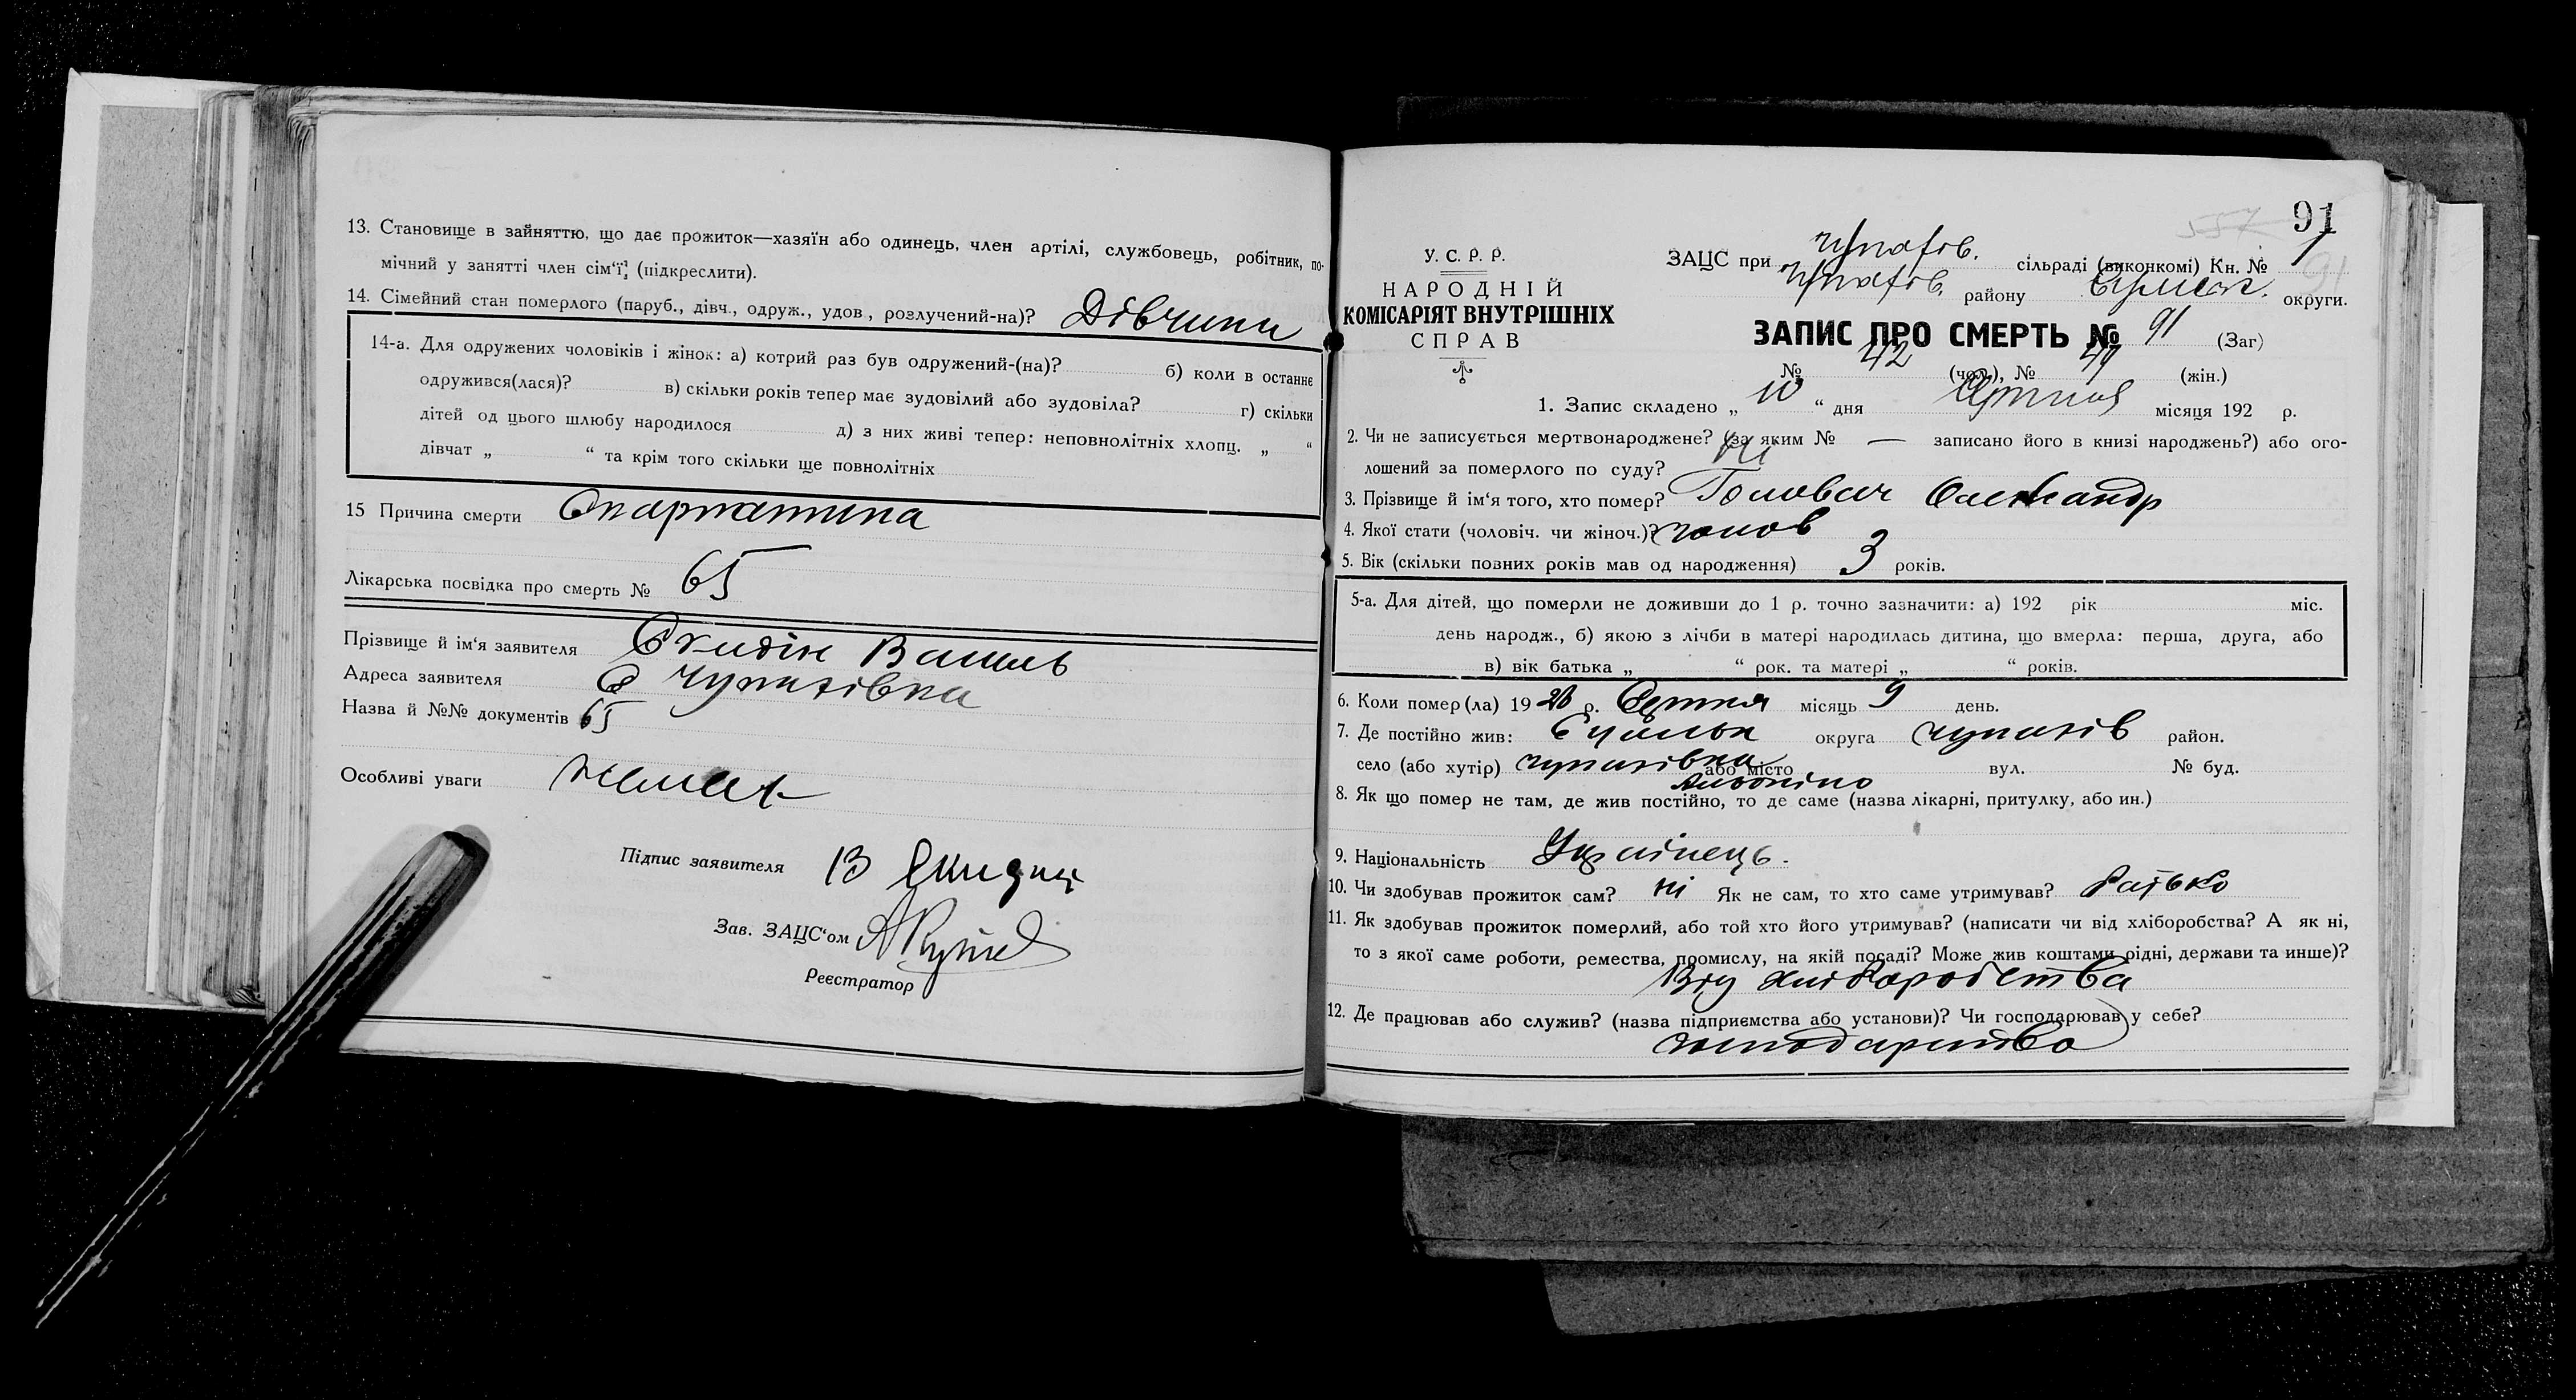 13. Становище в зайняттю, що дає прожиток—хазяїн або одинець, член артілі, службовець, робітник, по-
мічний у занятті член сім'ї (підкреслити).
14. Сімейний стан померлого (паруб., дівч., одруж., удов., розлучений-на)? Дівчина
14-а. Для одружених чоловіків і жінок: а) котрий раз був одружений-(на)? б) коли в останнє
одружився(лася)? в) скільки років тепер має зудовілий або зудовіла? г) скільки
дітей од цього шлюбу народилося д) з них живі тепер: неповнолітніх хлопц. „ “
дівчат „ “ та крім того скільки ще повнолітніх
15 Причина смерти Скарлатина
Лікарська посвідка про смерть № 65
Прізвище й ім'я заявителя Василь
Адреса заявителя С Чупахівка
Назва й №№ документів 65
Особливі уваги немає
Підпис заявителя В
Зав. ЗАЦС'ом
Реєстратор
91
557
У. С. Р. Р.
НАРОДНІЙ
КОМІСАРІЯТ ВНУТРІШНІХ
СПРАВ
ЗАЦС при Чупахів. сільраді (виконкомі) Кн. № 1
Чупахів. району Сумськ. округи.
91
ЗАПИС ПРО СМЕРТЬ № 91 (Заг)
№ 42 (чол.), № 49 (жін.)
1. Запис складено „ 10 “ дня Серпня місяця 192 р.
2. Чи не записується мертвонароджене? (за яким № — записано його в книзі народжень?) або ого-
лошений за померлого по суду? Ні
3. Прізвище й ім'я того, хто помер? Головач Олександр
4. Якої стати (чоловіч. чи жіноч.)? чолов
5. Вік (скільки повних років мав од народження) 3 років.
5-а. Для дітей, що померли не доживши до 1 р. точно зазначити: а) 192 рік міс.
день народж., б) якою з лічби в матері народилась дитина, що вмерла: перша, друга, або
в) вік батька „ “ рок. та матері „ “ років.
6. Коли помер(ла) 1928 р. Серпня місяць 9 день.
7. Де постійно жив: Сумська округа Чупахів район.
село (або хутір) Чупахівка або місто вул. № буд.
8. Як що помер не там, де жив постійно, то де саме (назва лікарні, притулку, або ин.)
9. Національність Українець.
10. Чи здобував прожиток сам? ні Як не сам, то хто саме утримував? батько
11. Як здобував прожиток померлий, або той хто його утримував? (написати чи від хліборобства? А як ні,
то з якої саме роботи, ремества, промислу, на якій посаді? Може жив коштами рідні, держави та инше)?
Від хліборобства
12. Де працював або служив? (назва підприємства або установи)? Чи господарював у себе?
господарство